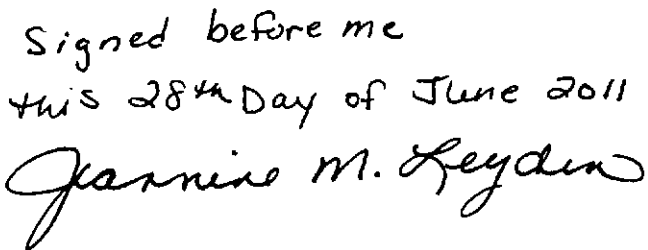 Signed before me
this 28th Day of June 2011
Jeannine M. Leyden